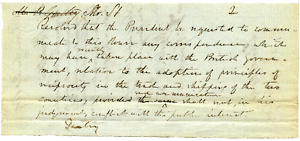 Mr. S 2
Resolved that the President be requested to commu-
nicate to this house any correspondence which
may have recently taken place with the British govern-
ment, relation to the adoption of principles of
reciprocity in the trade and shipping of the two
countries, provided the same shall not in his
judgment, conflict with the public interest